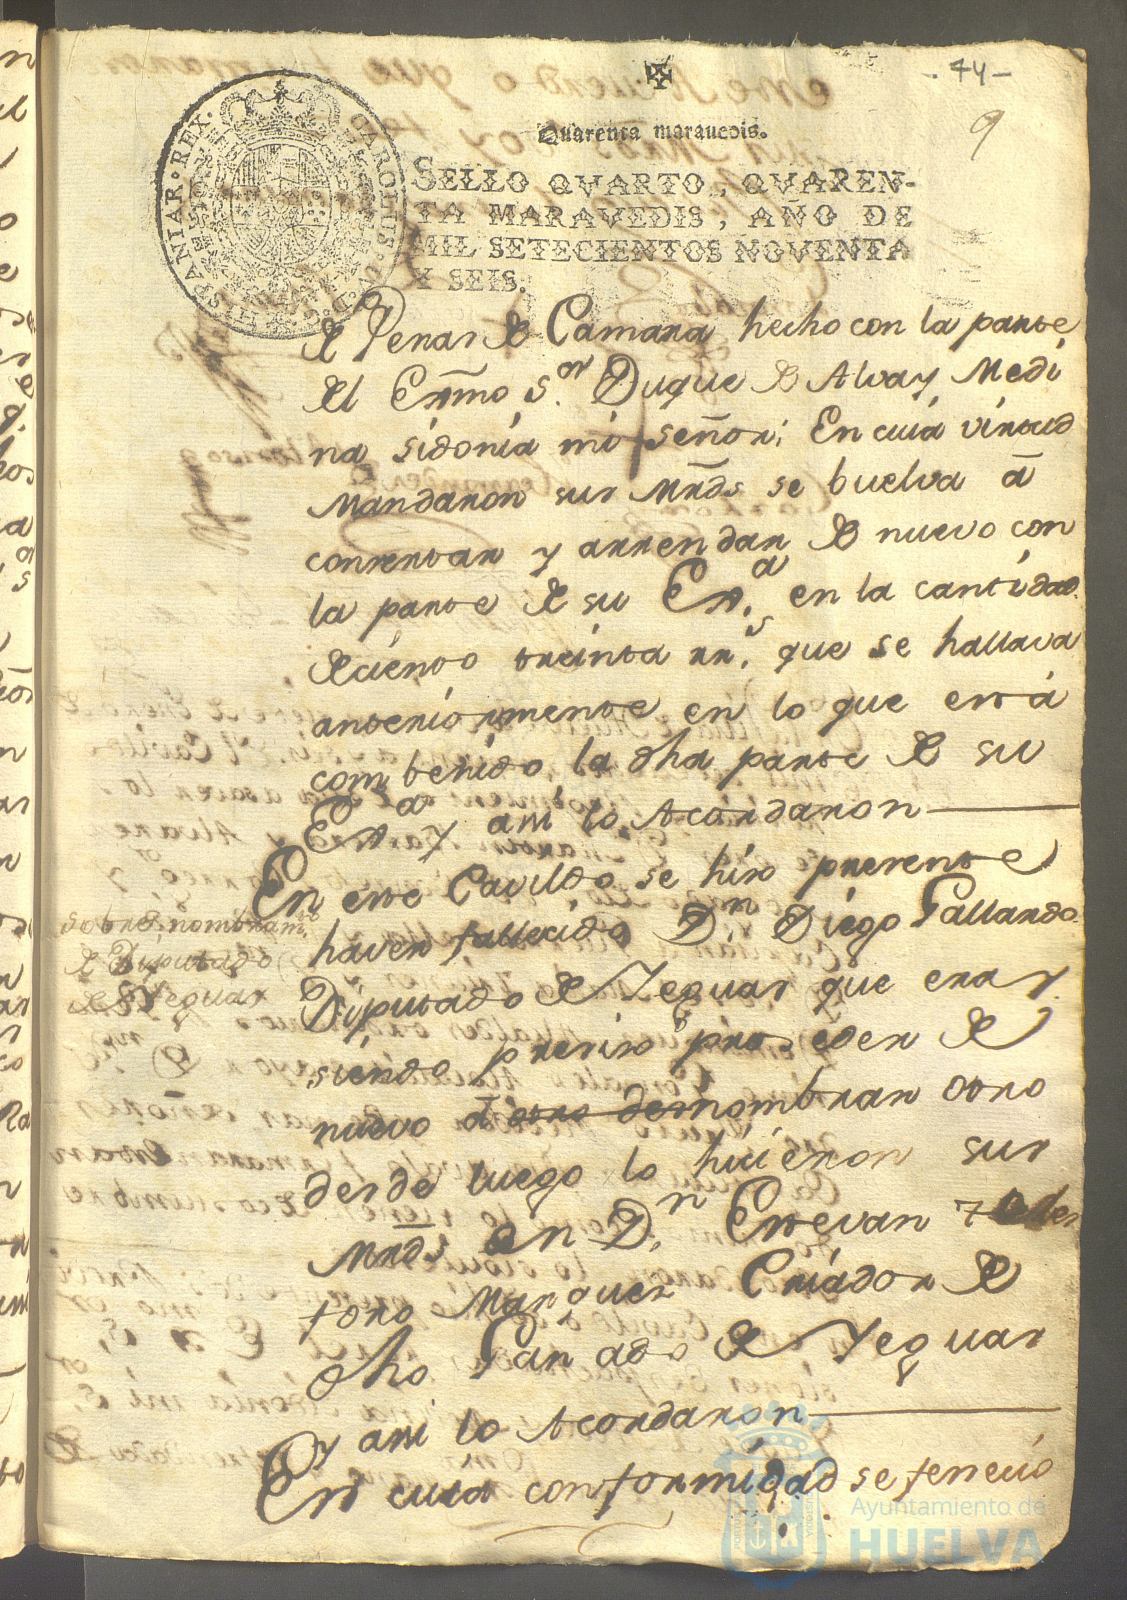 - 74 -
9
Quarenta maravedis.
SELLO QVARTO, QVAREN-
TA MARAVEDIS, AÑO DE
MIL SETECIENTOS NOVENTA
Y SEIS.
HISPANIAR·REX· CAROLUS·IV·D·G·
de Penas de Camara hecho con la parte
del Exmo S.or Duque de Alva y Medi
na sidonia mi señor; En cuia virtud
Mandaron sus Mrds se buelva á
consertar y arrendar de nuevo con
la parte de su Exa. en la cantidad
de ciento treinta rr.s que se hallava
anteriormente en lo que está
combenido la dha parte de su
Exa y asi lo Acordaron
En este Cavildo se hiso presente
sobre nombram.to
de Diputado
de Yeguas
haver fallecido D.n Diego Gallardo
Diputado de Yeguas que era y
siendo presiso proseder de
nuevo á otro de nombrar otro
desde luego lo hicieron sus
Mrds en D.n Estevan
toro Marquez Criador de
dho Ganado de Yeguas
y asi lo Acordaron
En cuia conformidad se fenecio
Ayuntamiento de
HUELVA